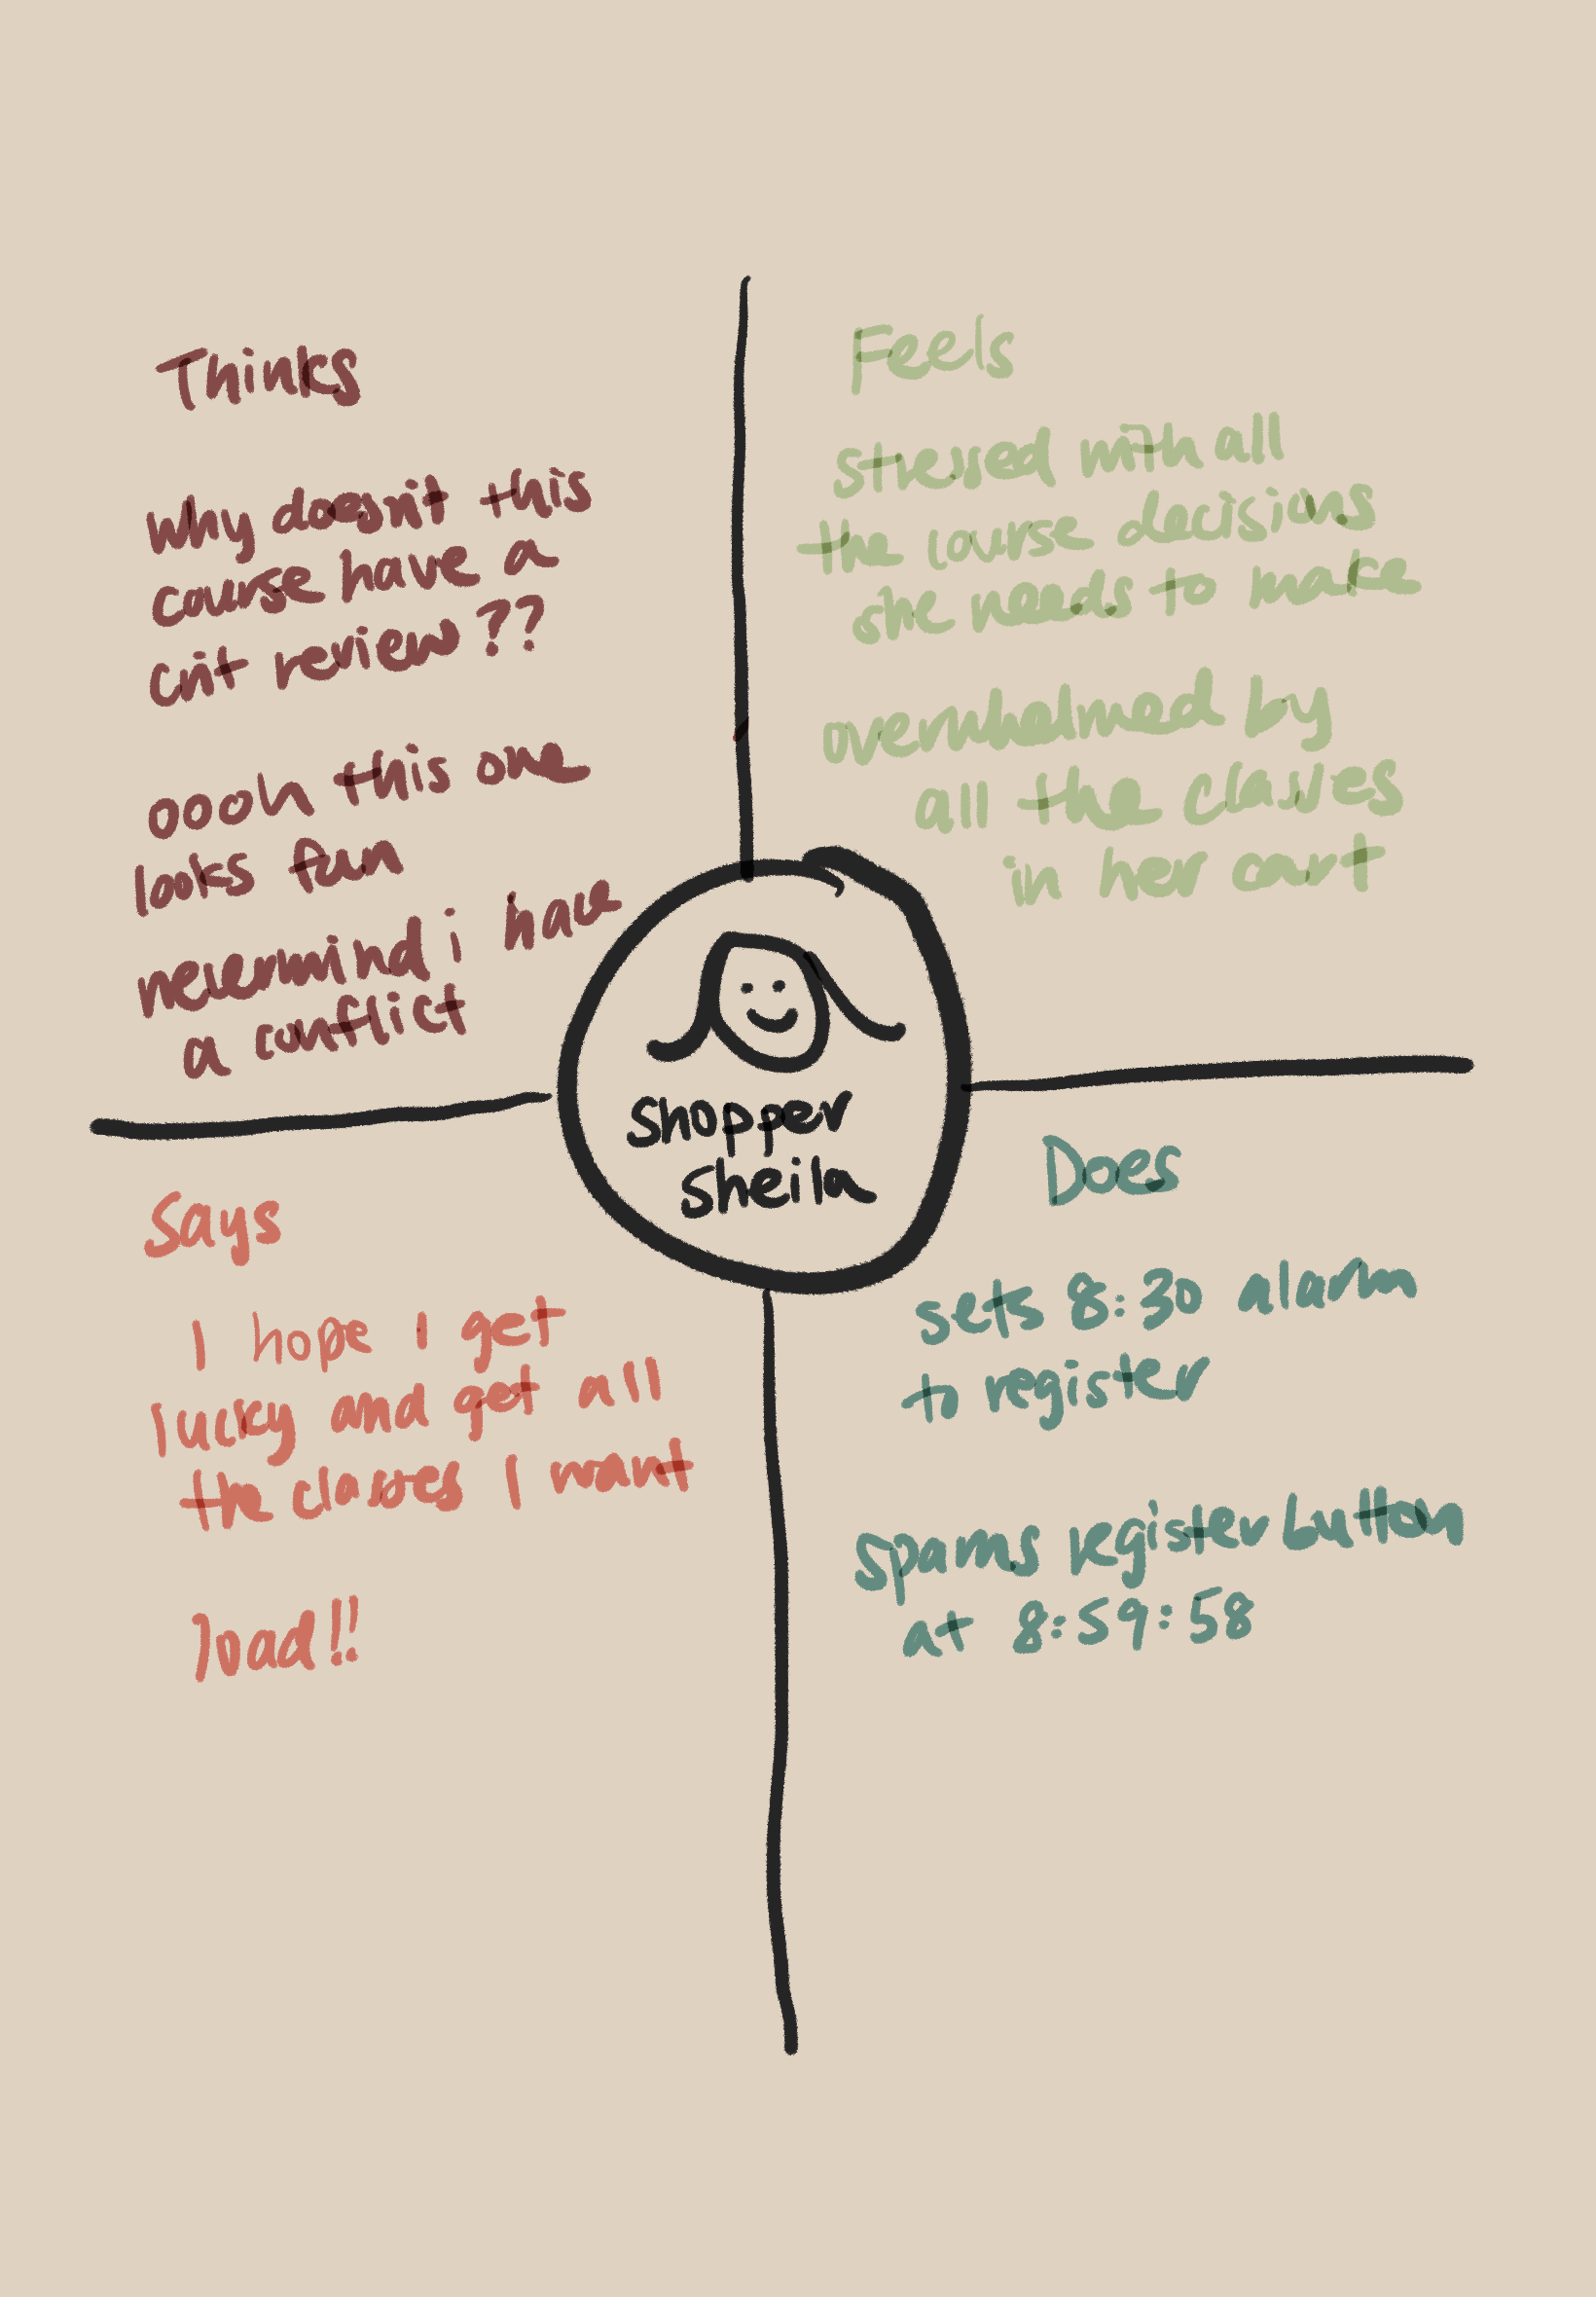 Thinks
Why doesn't this
course have a
crit review??
oooh this one
looks fun
nevermind i have
a conflict
Feels
stressed with all
the course decisions
she needs to make
overwhelmed by
all the classes
in her cart
Shopper
Sheila
Says
I hope I get
lucky and get all
the classes I want
load!!
Does
sets 8:30 alarm
to register
spams register button
at 8:59:58